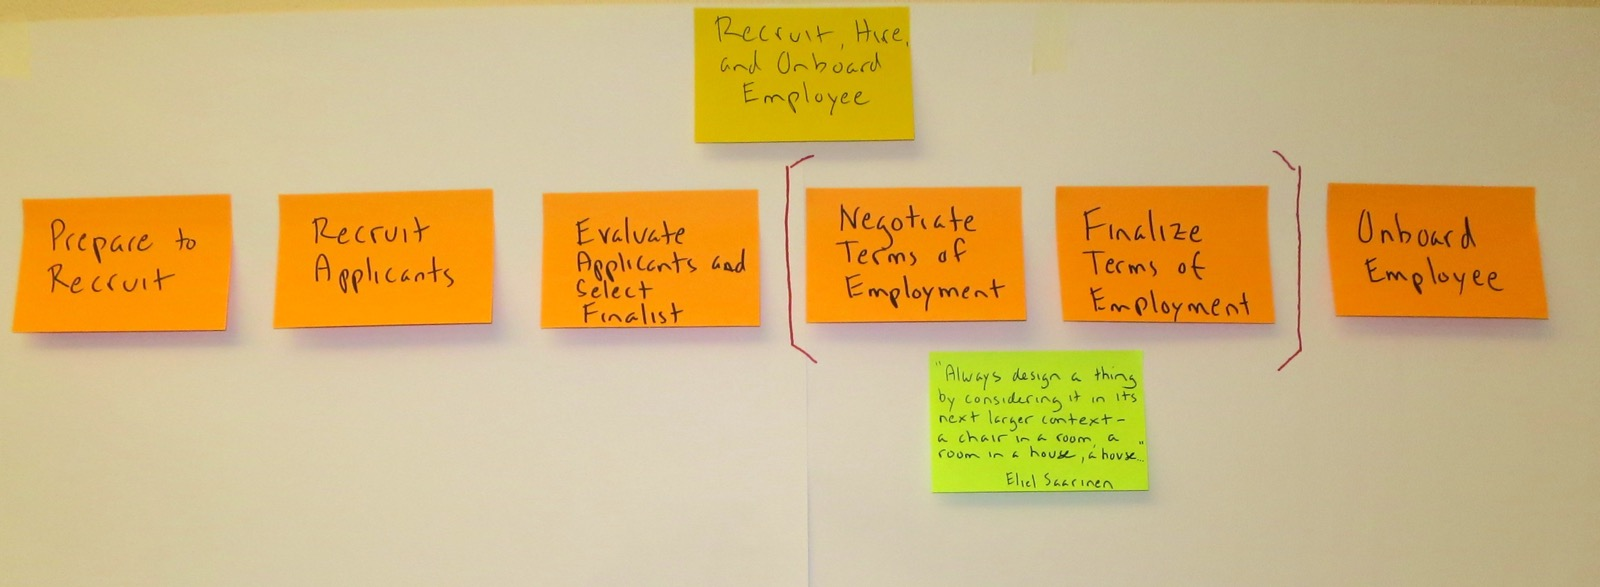 Recruit, Hire,
and Onboard
Employee
Prepare to
Recruit
Recruit
Applicants
Evaluate
Applicants and
Select
Finalist
Negotiate
Terms of
Employment
Finalize
Terms of
Employment
Onboard
Employee
"Always design a thing
by considering it in its
next larger context-
a chair in a room, a
room in a house, a house..."
Eliel Saarinen